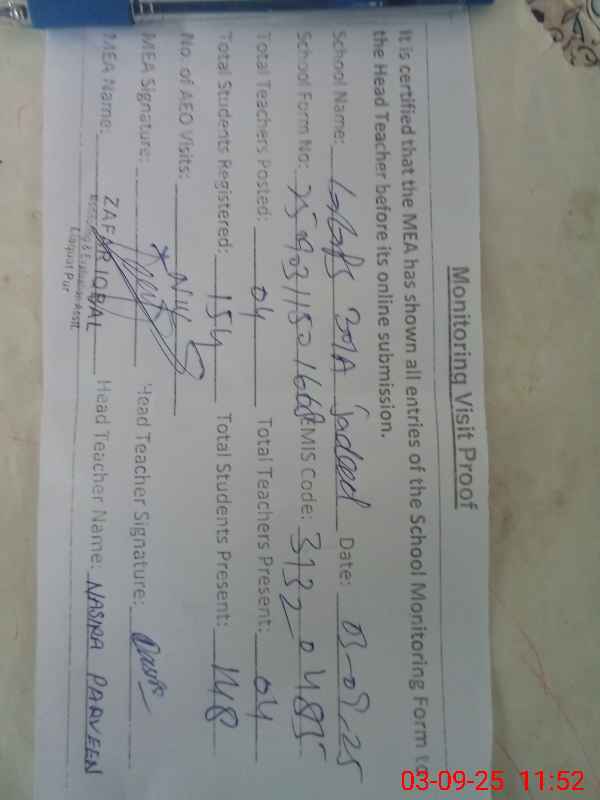 Monitoring Visit Proof
It is certified that the MEA has shown all entries of the School Monitoring Form to
the Head Teacher before its online submission.
School Name: 201A Jadeed Date: 03-09-25
School Form No: EMIS Code: 31320485
Total Teachers Posted: 04 Total Teachers Present: 04
Total Students Registered: 154 Total Students Present: 148
No. of AEO Visits: Nil
MEA Signature: Head Teacher Signature:
MEA Name: ZAFAR IQBAL Head Teacher Name: NASIRA PARVEEN
Liaquat Pur
03-09-25 11:52